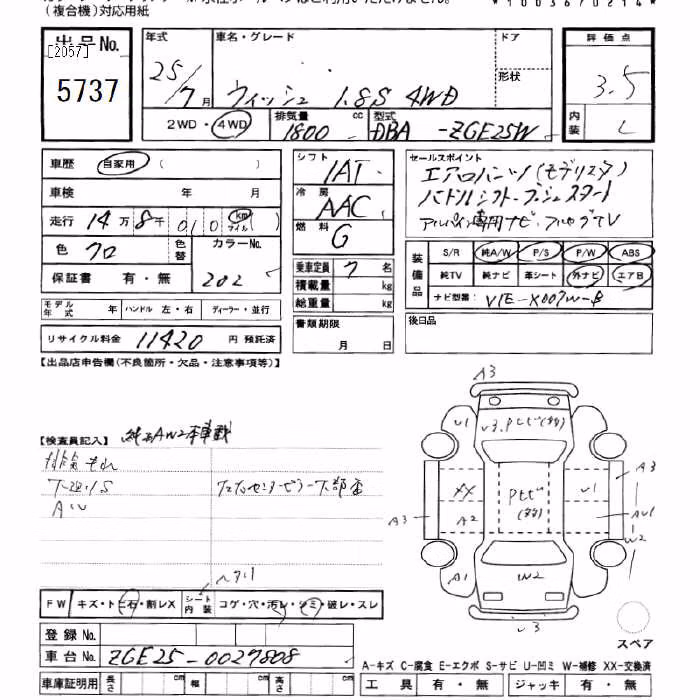 (複合機)対応用紙
出品No.
[2057]
5737
年式 車名・グレード ドア 評価点
25/7月 ウィッシュ 1.8S 4WD 形状 3.5
2WD・4WD 排気量 1800 cc 型式 DBA -ZGE25W 内装 C
車歴 自家用 ( )
シフト IAT
セールスポイント
エアロパンツ(モデリスタ)
パドルシフト・プッシュスタート
アルパイン専用ナビ・フルセグTV
車検 年 月
冷房 AAC
走行 14万 8千 010 km マイル
燃料 G
色 クロ 色替 カラーNo. 202
保証書 有・無
乗車定員 7 名
積載量 kg
総重量 kg
装備品 S/R 純A/W P/S P/W ABS
純TV 純ナビ 革シート 外ナビ エアB
ナビ型番 VIE-X007W-B
モデル年式 年 ハンドル 左・右 ディーラー・並行
書類期限
月 日
後日品
リサイクル料金 11420 円 預託済
【出品店申告欄(不良箇所・欠品・注意事項等)】
【検査員記入】 純正AW2本車載
排気もれ
下廻りS
AW
A3
U1
U3
Pとび
XX
Pとび
U1
A3
A3
A2
AU1
W2
A1
W2
U3
FW キズ・トビ石・割レX シート内装 コゲ・穴・汚レ・シミ・破レ・スレ
登録No.
車台No. ZGE25-0027808
スペア
A-キズ C-腐食 E-エクボ S-サビ U-凹ミ W-補修 XX-交換済
車庫証明用 長さ cm 幅 cm 高さ cm
工具 有・無 ジャッキ 有・無